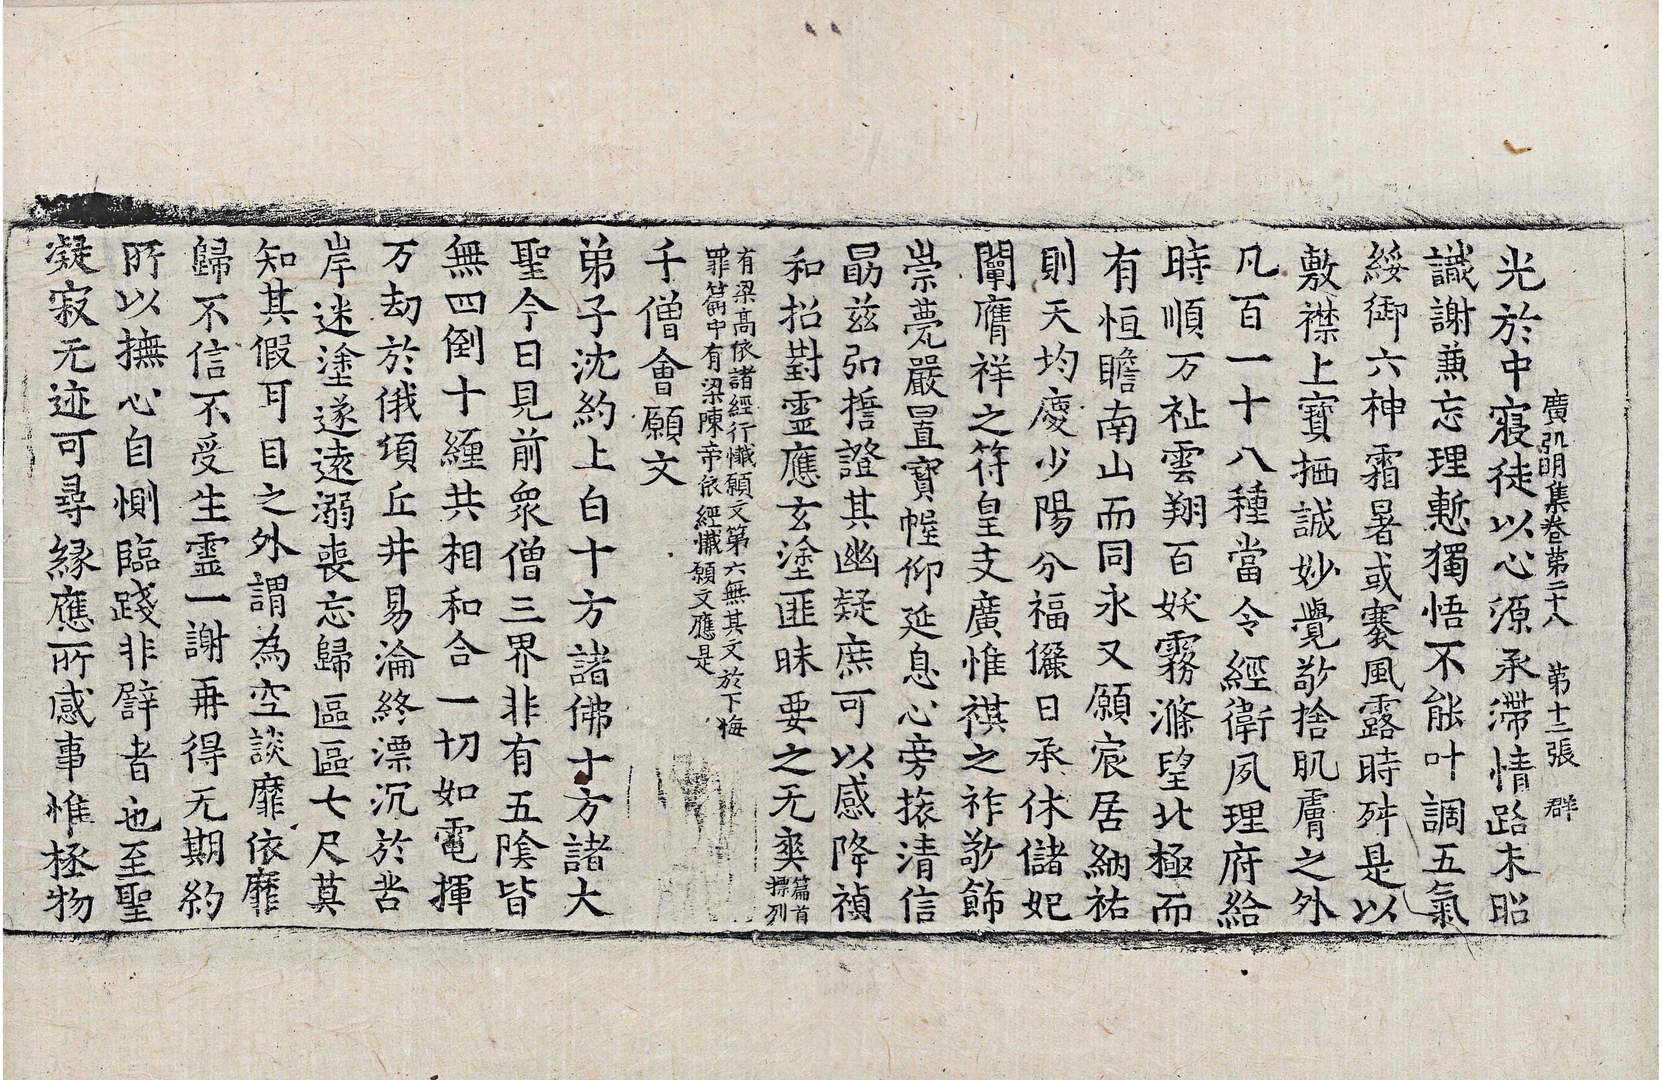 廣弘明集卷第二十八　第十二張　群
光於中寢徒以心源承滯情路未昭
識謝兼忘理慙獨悟不能叶調五氣
綏御六神霜暑或褰風露時舛是以
敷襟上寶栖誠妙覺敬捨肌膚之外
凡百一十八種當令經衛夙理府給
時順万祉雲翔百妖霧滌望北極而
有恒瞻南山而同永又願宸居納祐
則天均慶少陽分福儷日承休儲妃
闡膺祥之符皇支廣惟祺之祚敬飾
崇甍嚴置寶幄仰延息心旁採清信
勗兹弘誓證其幽疑庶可以感降禎
和招對靈應玄塗匪昧要之无爽篇首標列
有梁高依諸經行懺願文第六無其文於下悔
罪篇中有梁陳帝依經懺願文應是
千僧會願文
弟子沈約上白十方諸佛十方諸大
聖今日見前衆僧三界非有五陰皆
無四倒十纏共相和合一切如電揮
万劫於俄項丘井易淪終漂沉於苦
岸迷塗遂遠溺喪忘歸區區七尺莫
知其假耳目之外謂為空談靡依靡
歸不信不受生靈一謝再得无期約
所以撫心自惻臨踐非譬者也至聖
凝寂无迹可尋緣應所感事惟拯物